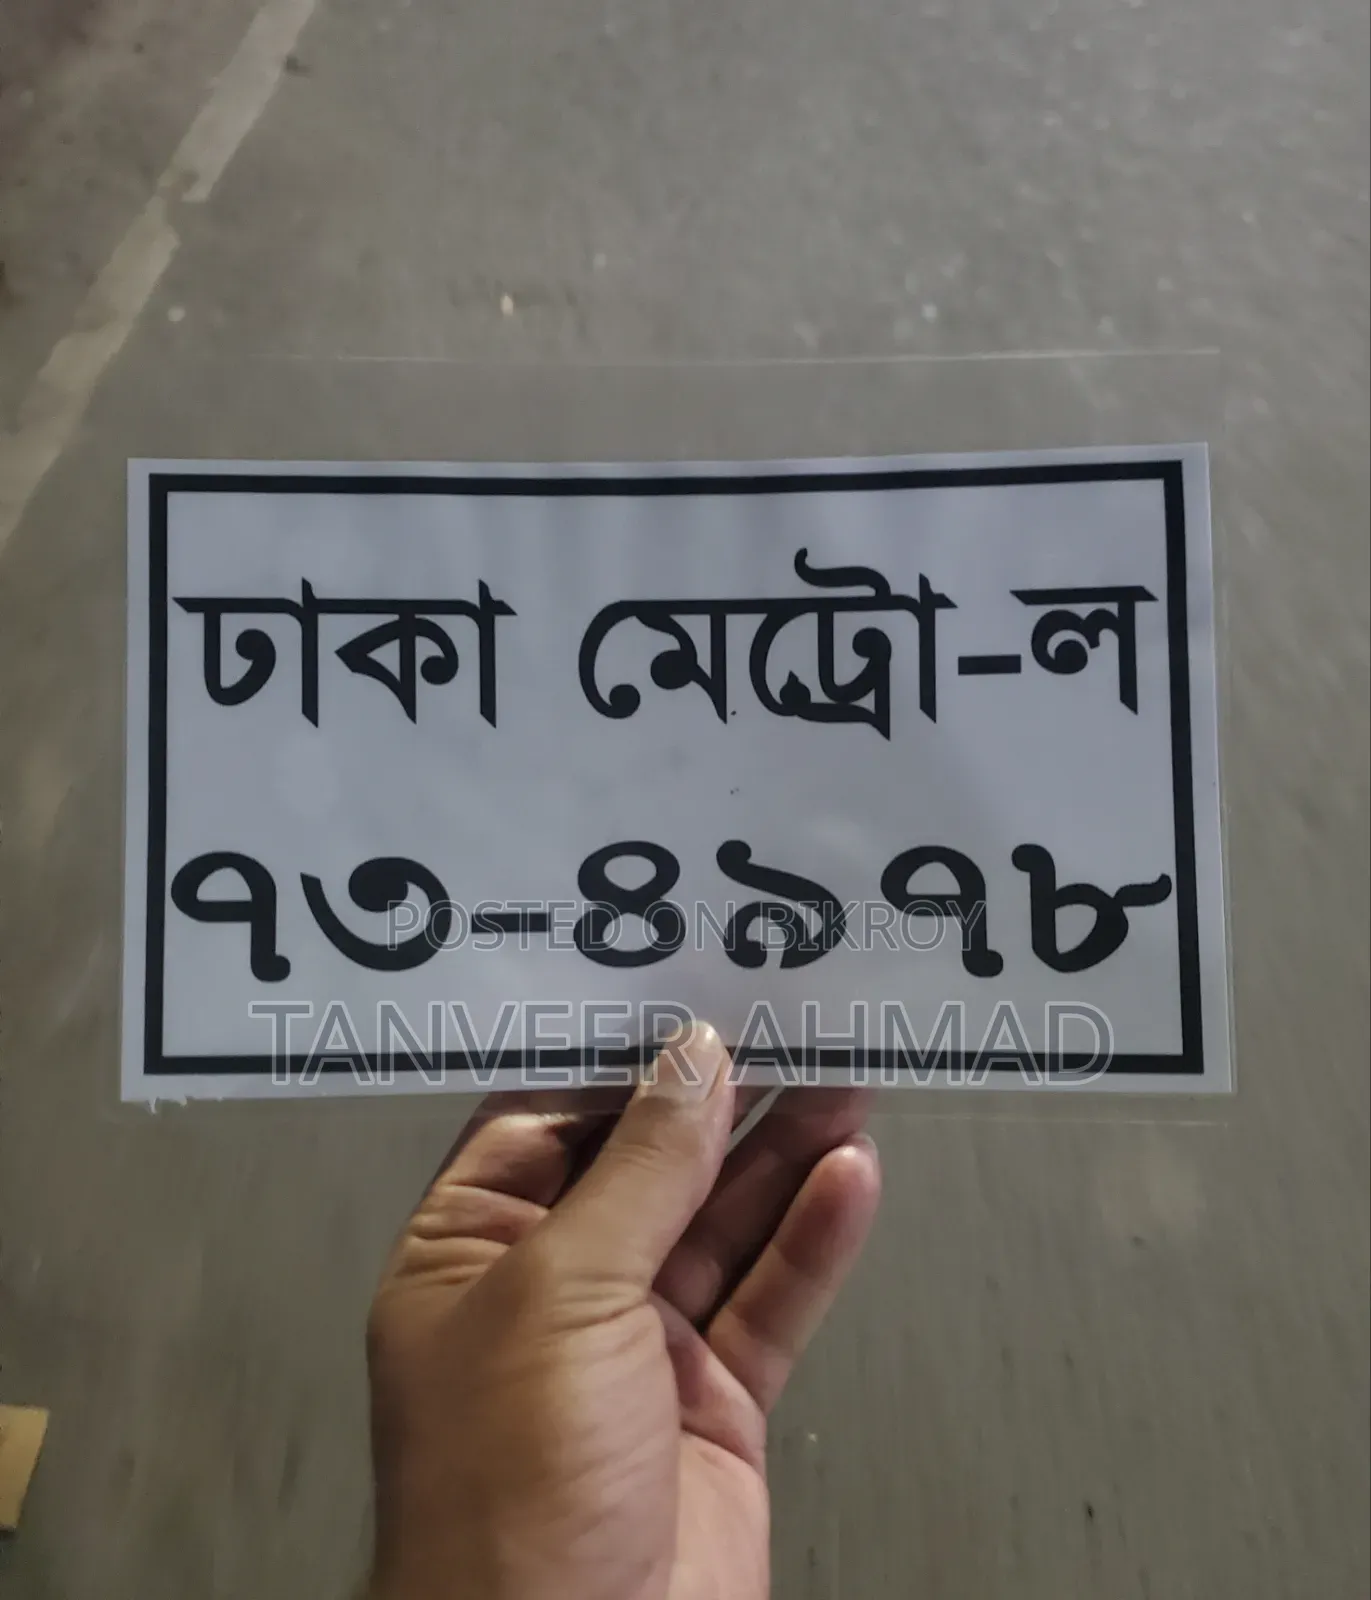 ঢাকা মেট্রো-ল
৭৩-৪৯৭৮
POSTED ON BIKROY
TANVEER AHMAD